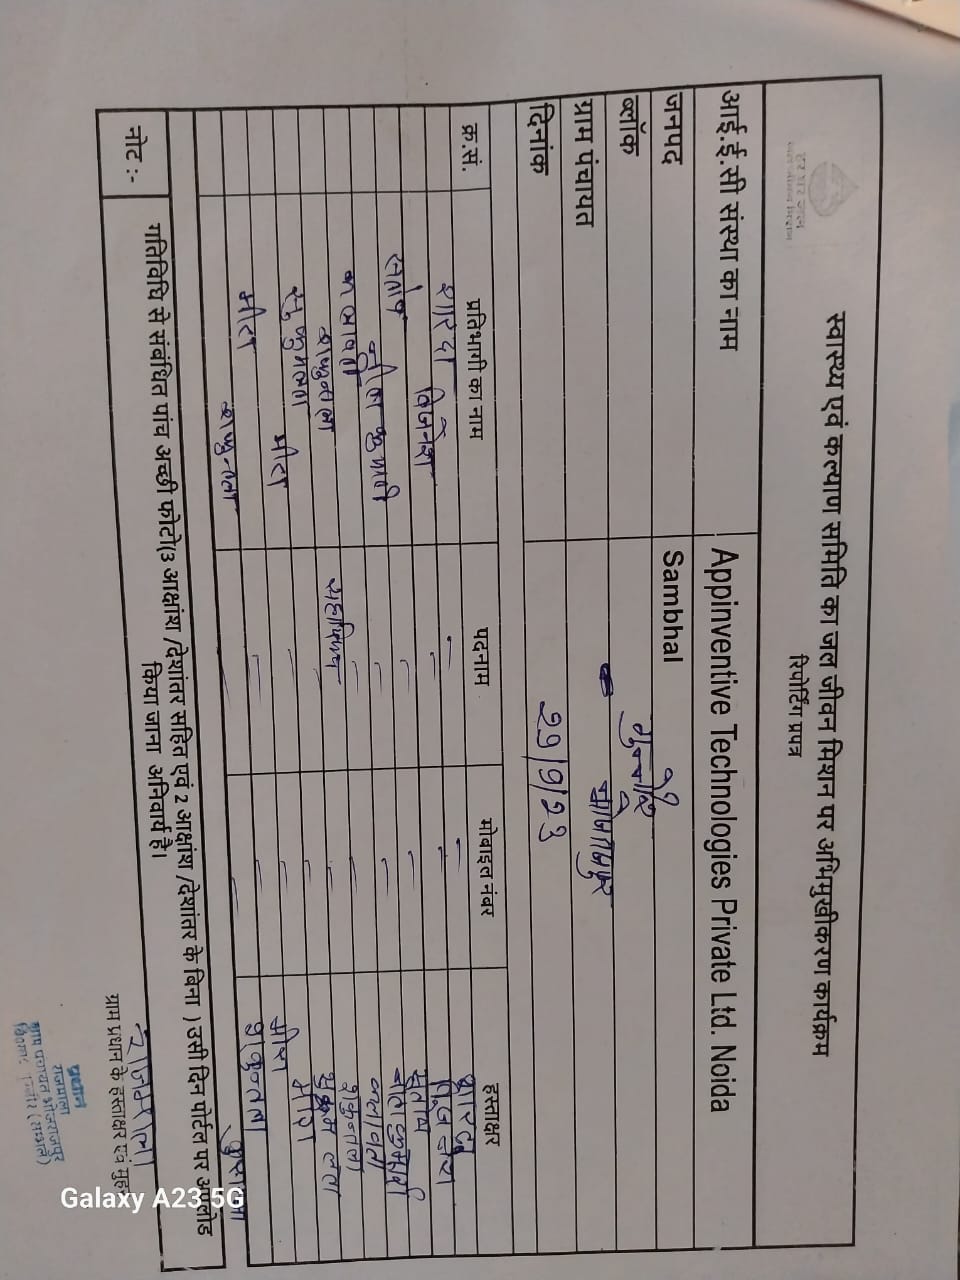 हर घर जल
जल जीवन मिशन
स्वास्थ्य एवं कल्याण समिति का जल जीवन मिशन पर अभिमुखीकरण कार्यक्रम
रिपोर्टिंग प्रपत्र
आई.ई.सी संस्था का नाम Appinventive Technologies Private Ltd. Noida
जनपद Sambhal
ब्लॉक गुन्नौर
ग्राम पंचायत भोजराजपुर
दिनांक 29/9/23
क्र.सं. प्रतिभागी का नाम पदनाम मोबाइल नंबर हस्ताक्षर
शारदा शारदा
विजनेश
संतोष संतोष
नीलम कुमारी
कलावती कलावती
शकुन्तला शकुन्तला
मीरा मीरा
शकुन्तला
नोट :- गतिविधि से संबंधित पांच अच्छी फोटो(3 आक्षांश /देशांतर सहित एवं 2 आक्षांश /देशांतर के बिना ) उसी दिन पोर्टल पर अपलोड
किया जाना अनिवार्य है।
ग्राम प्रधान के हस्ताक्षर एवं मुहर
प्रधान
राजमाला
ग्राम पंचायत भोजराजपुर
Galaxy A23 5G